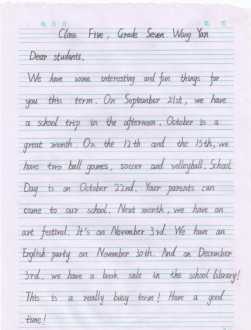 Class Five, Grade Seven Wang Yan
Dear students,
We have some interesting and fun things for
you this term. On September 21st, we have
a school trip in the afternoon. October is a
great month. On the 12th and the 15th, we
have two ball games, soccer and volleyball. School
Day is on October 22nd. Your parents can
come to our school. Next month, we have an
art festival. It's on November 3rd. We have an
English party on November 30th. And on December
3rd, we have a book sale in the school library!
This is a really busy term! Have a good
time!